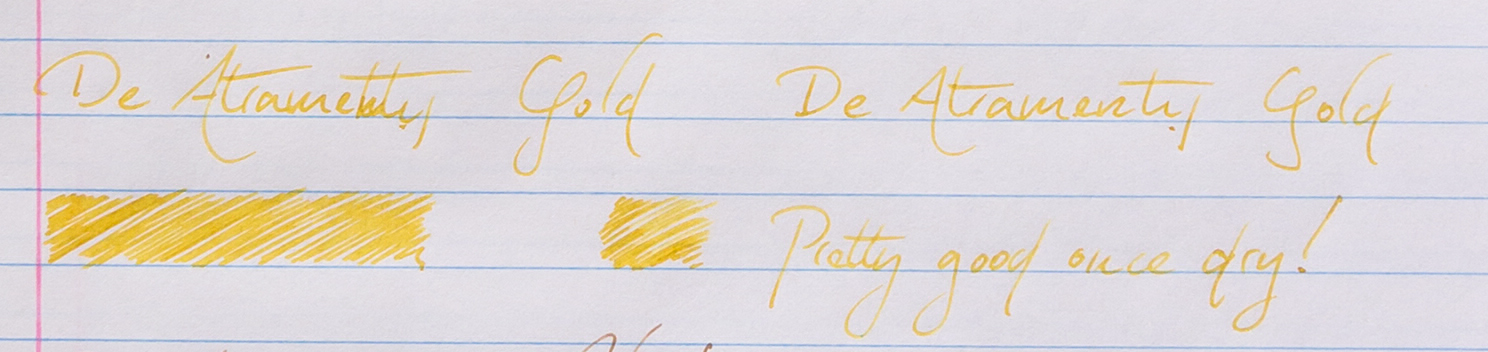 De Atramentis Gold De Atramentis Gold
Pretty good once dry!